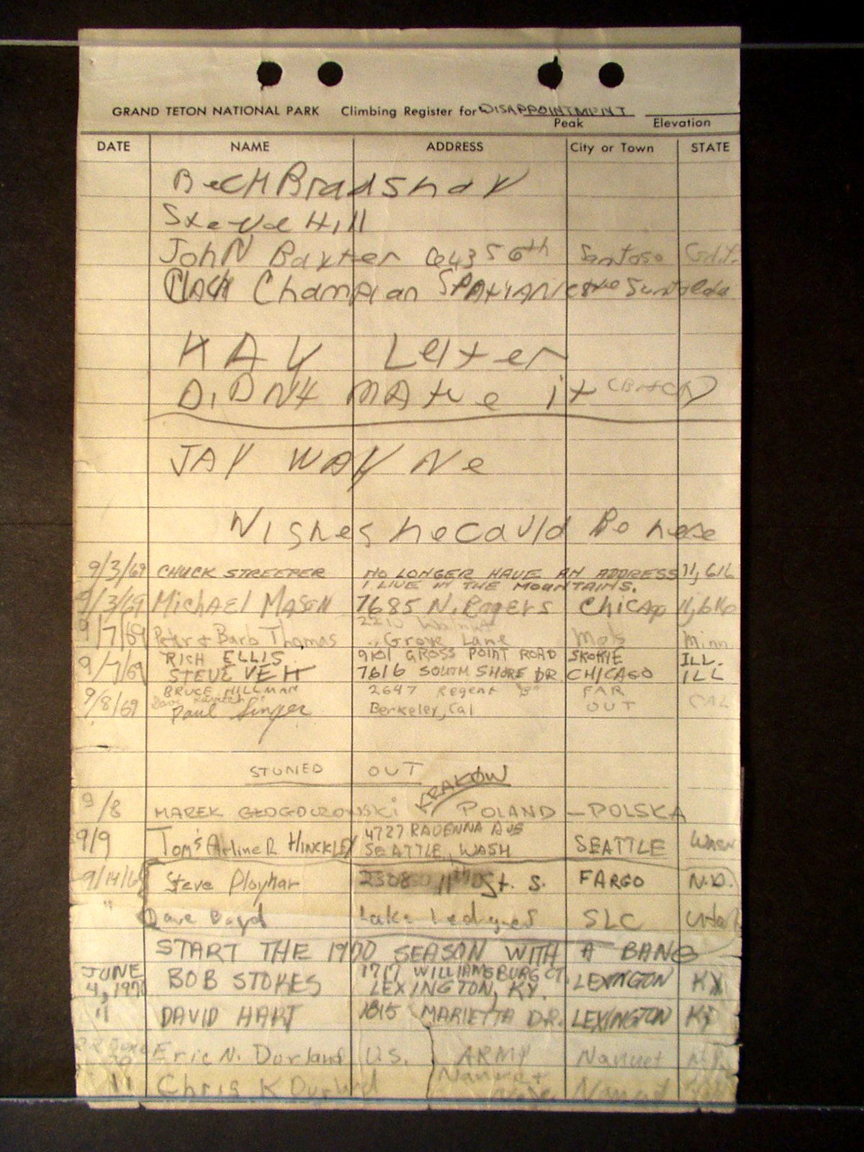 GRAND TETON NATIONAL PARK Climbing Register for DISAPPOINTMENT
Peak Elevation
DATE NAME ADDRESS City or Town STATE
Steve Hill
John Baxter 6th
Champian
KAY
DiDNt MAke it
JAY WAYNe
Wishes he could Be here
9/3/69 CHUCK STREEPER NO LONGER HAVE AN ADDRESS 11,616
I LIVE IN THE MOUNTAINS.
9/3/69 MICHAEL MASON 7685 N. Rogers CHICAgo 11,616
9/7/69 Peter & Barb Thomas Grove Lane Mpls Minn
9/7/69 RICH ELLIS 9101 GROSS POINT ROAD SKOKIE ILL.
STEVE VEIT 7616 SOUTH SHORE DR CHICAGO ILL
9/8/69 BRUCE HILLMAN 2647 Regent "B" FAR OUT CAL
Paul Singer Berkeley, Cal
STONED OUT
9/8 MAREK GŁOGOCZOWSKI KRAKÓW POLAND - POLSKA
9/9 Tom & Arline R HINCKLEY 4727 RAVENNA AVE
SEATTLE, WASH SEATTLE Wash
9/14/69 Steve Ployhar 2308 11th St. S. FARGO N.D.
" Dave Boyd Lake SLC Utah
START THE 1970 SEASON WITH A BANG
JUNE 4, 1970 BOB STOKES 1717 WILLIAMSBURG CT.
LEXINGTON, KY. LEXINGTON KY
" DAVID HART 1815 MARIETTA DR. LEXINGTON KY
Eric N. Durland U.S. ARMY Nanuet N.Y.
11 Chris K Durland Nanuet